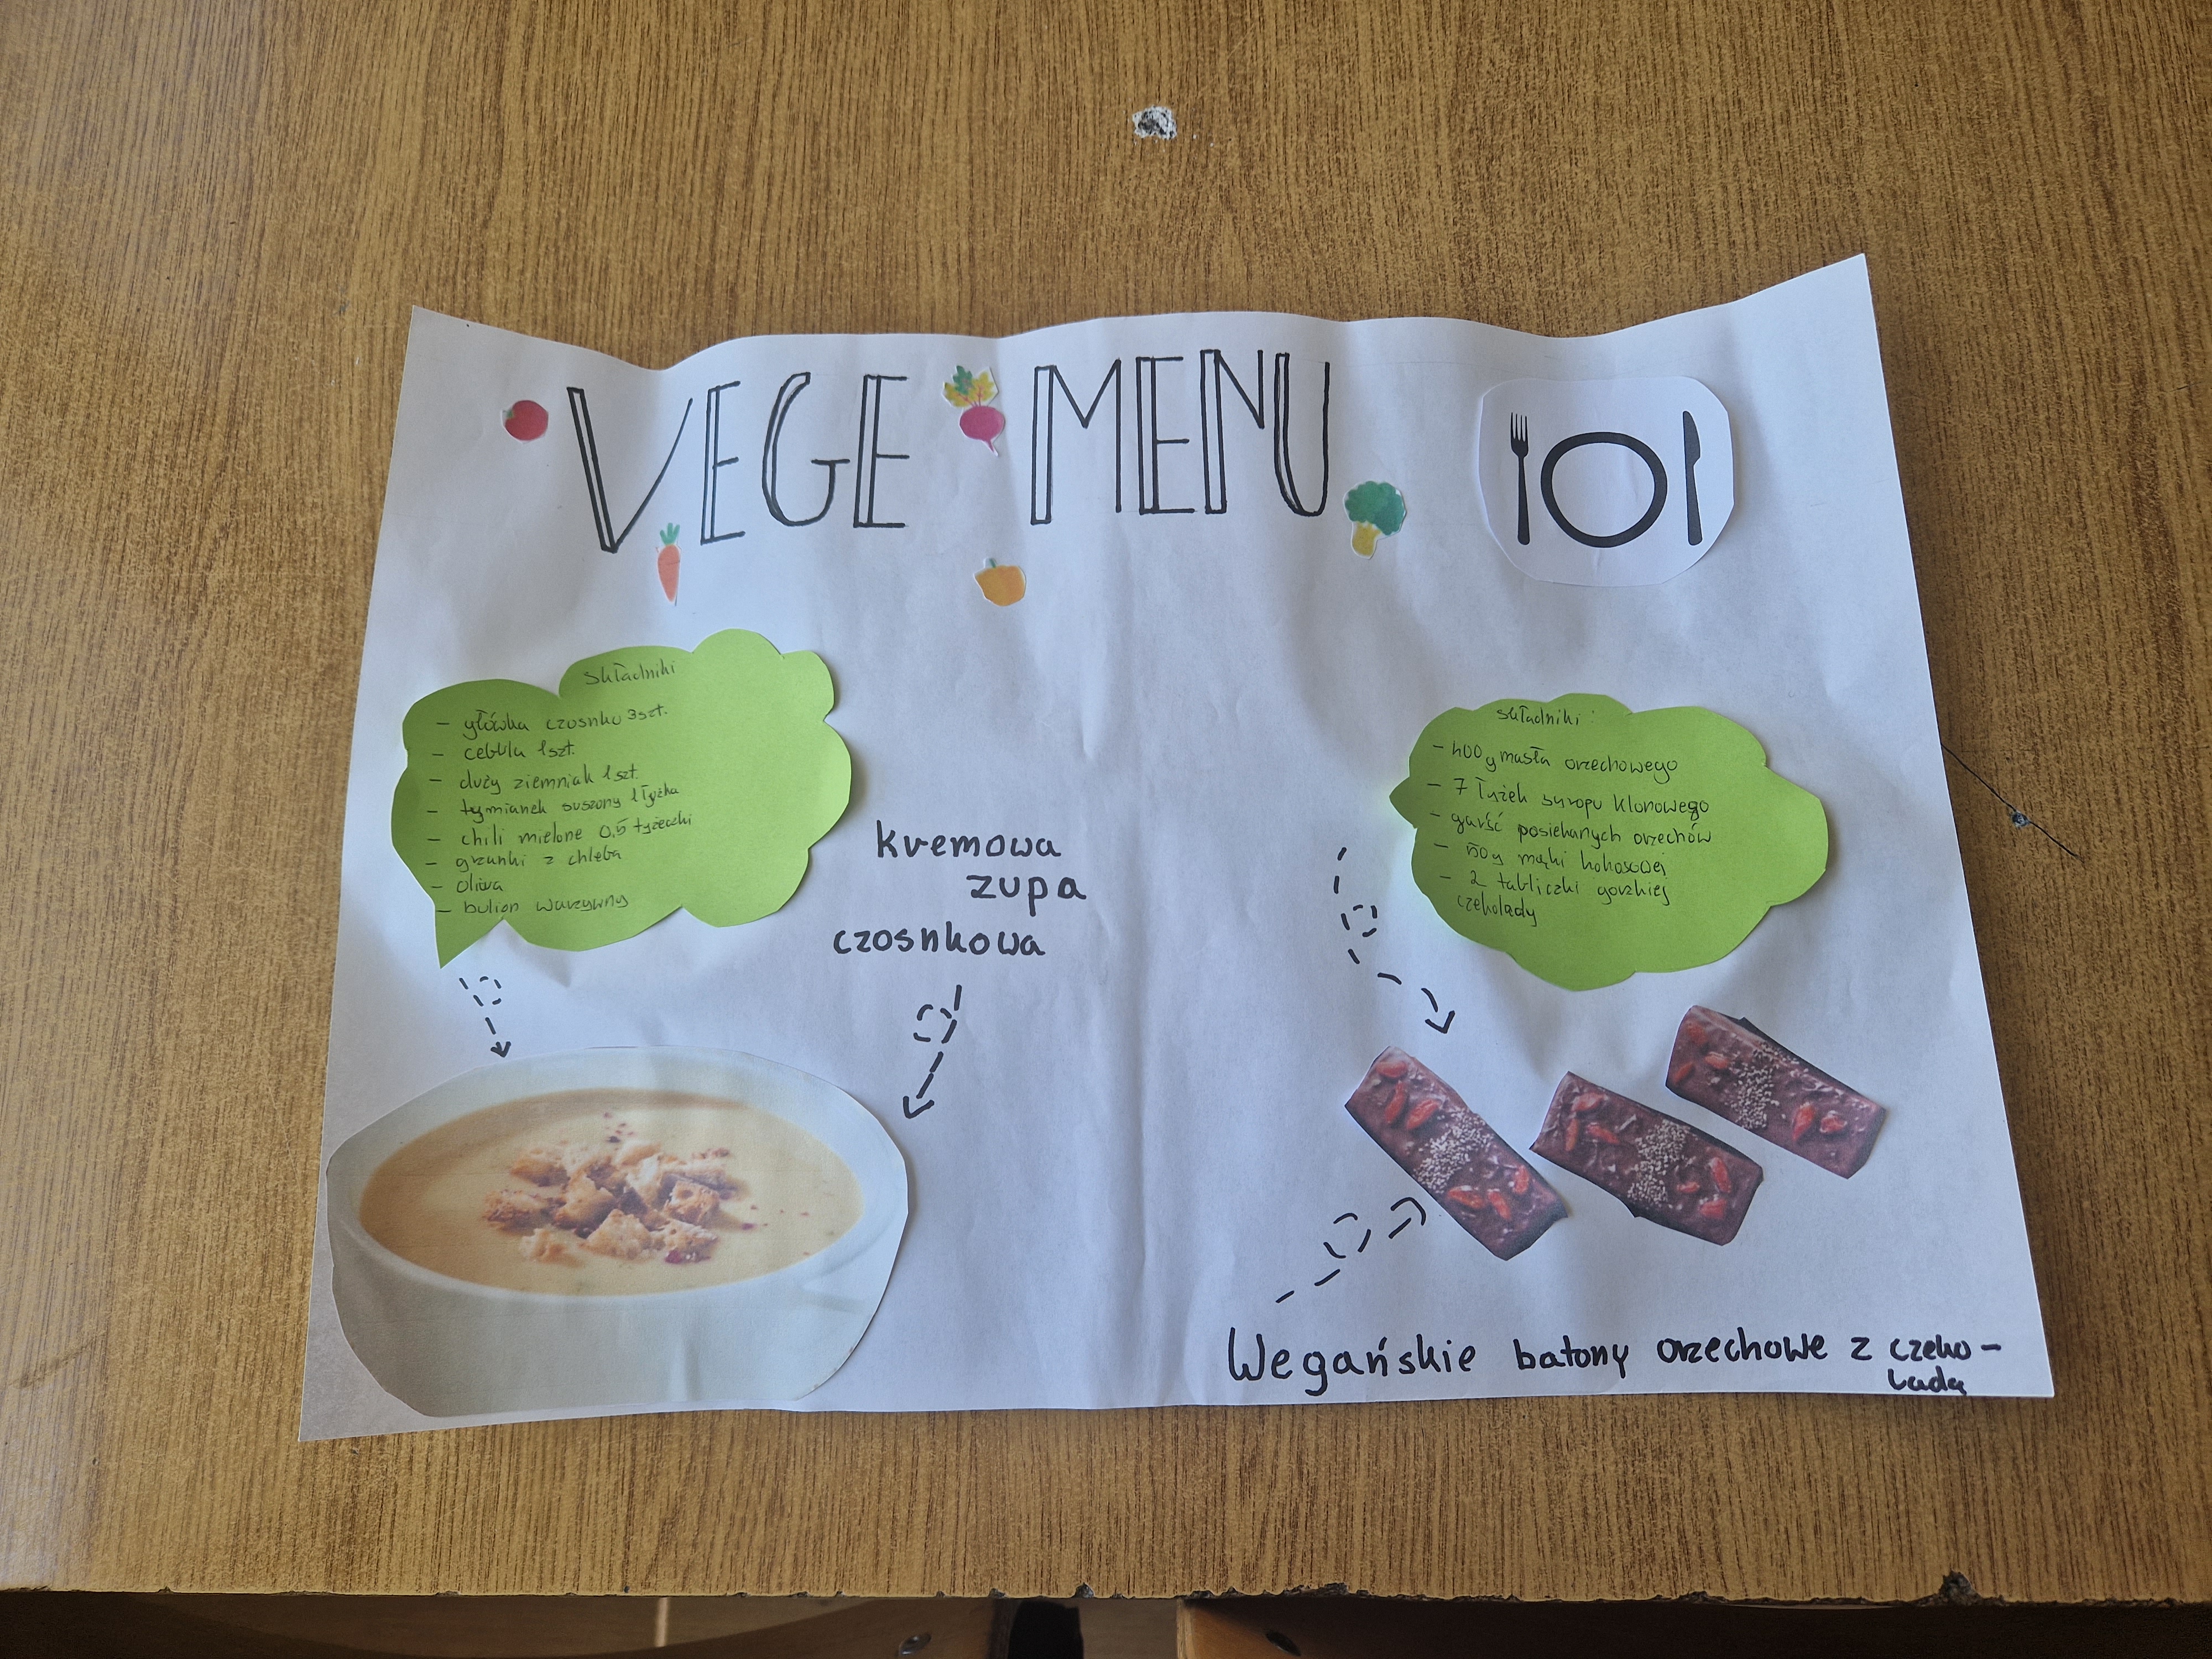 VEGE MENU
składniki
- główka czosnku 3szt.
- cebula 1szt.
- duży ziemniak 1szt.
- tymianek suszony 1 łyżka
- chili mielone 0,5 łyżeczki
- grzanki z chleba
- oliwa
- bulion warzywny
kremowa
zupa
czosnkowa
składniki:
- 400g masła orzechowego
- 7 łyżek syropu klonowego
- garść posiekanych orzechów
- 50g mąki kokosowej
- 2 tabliczki gorzkiej
czekolady
Wegańskie batony orzechowe z czeko-
ladą